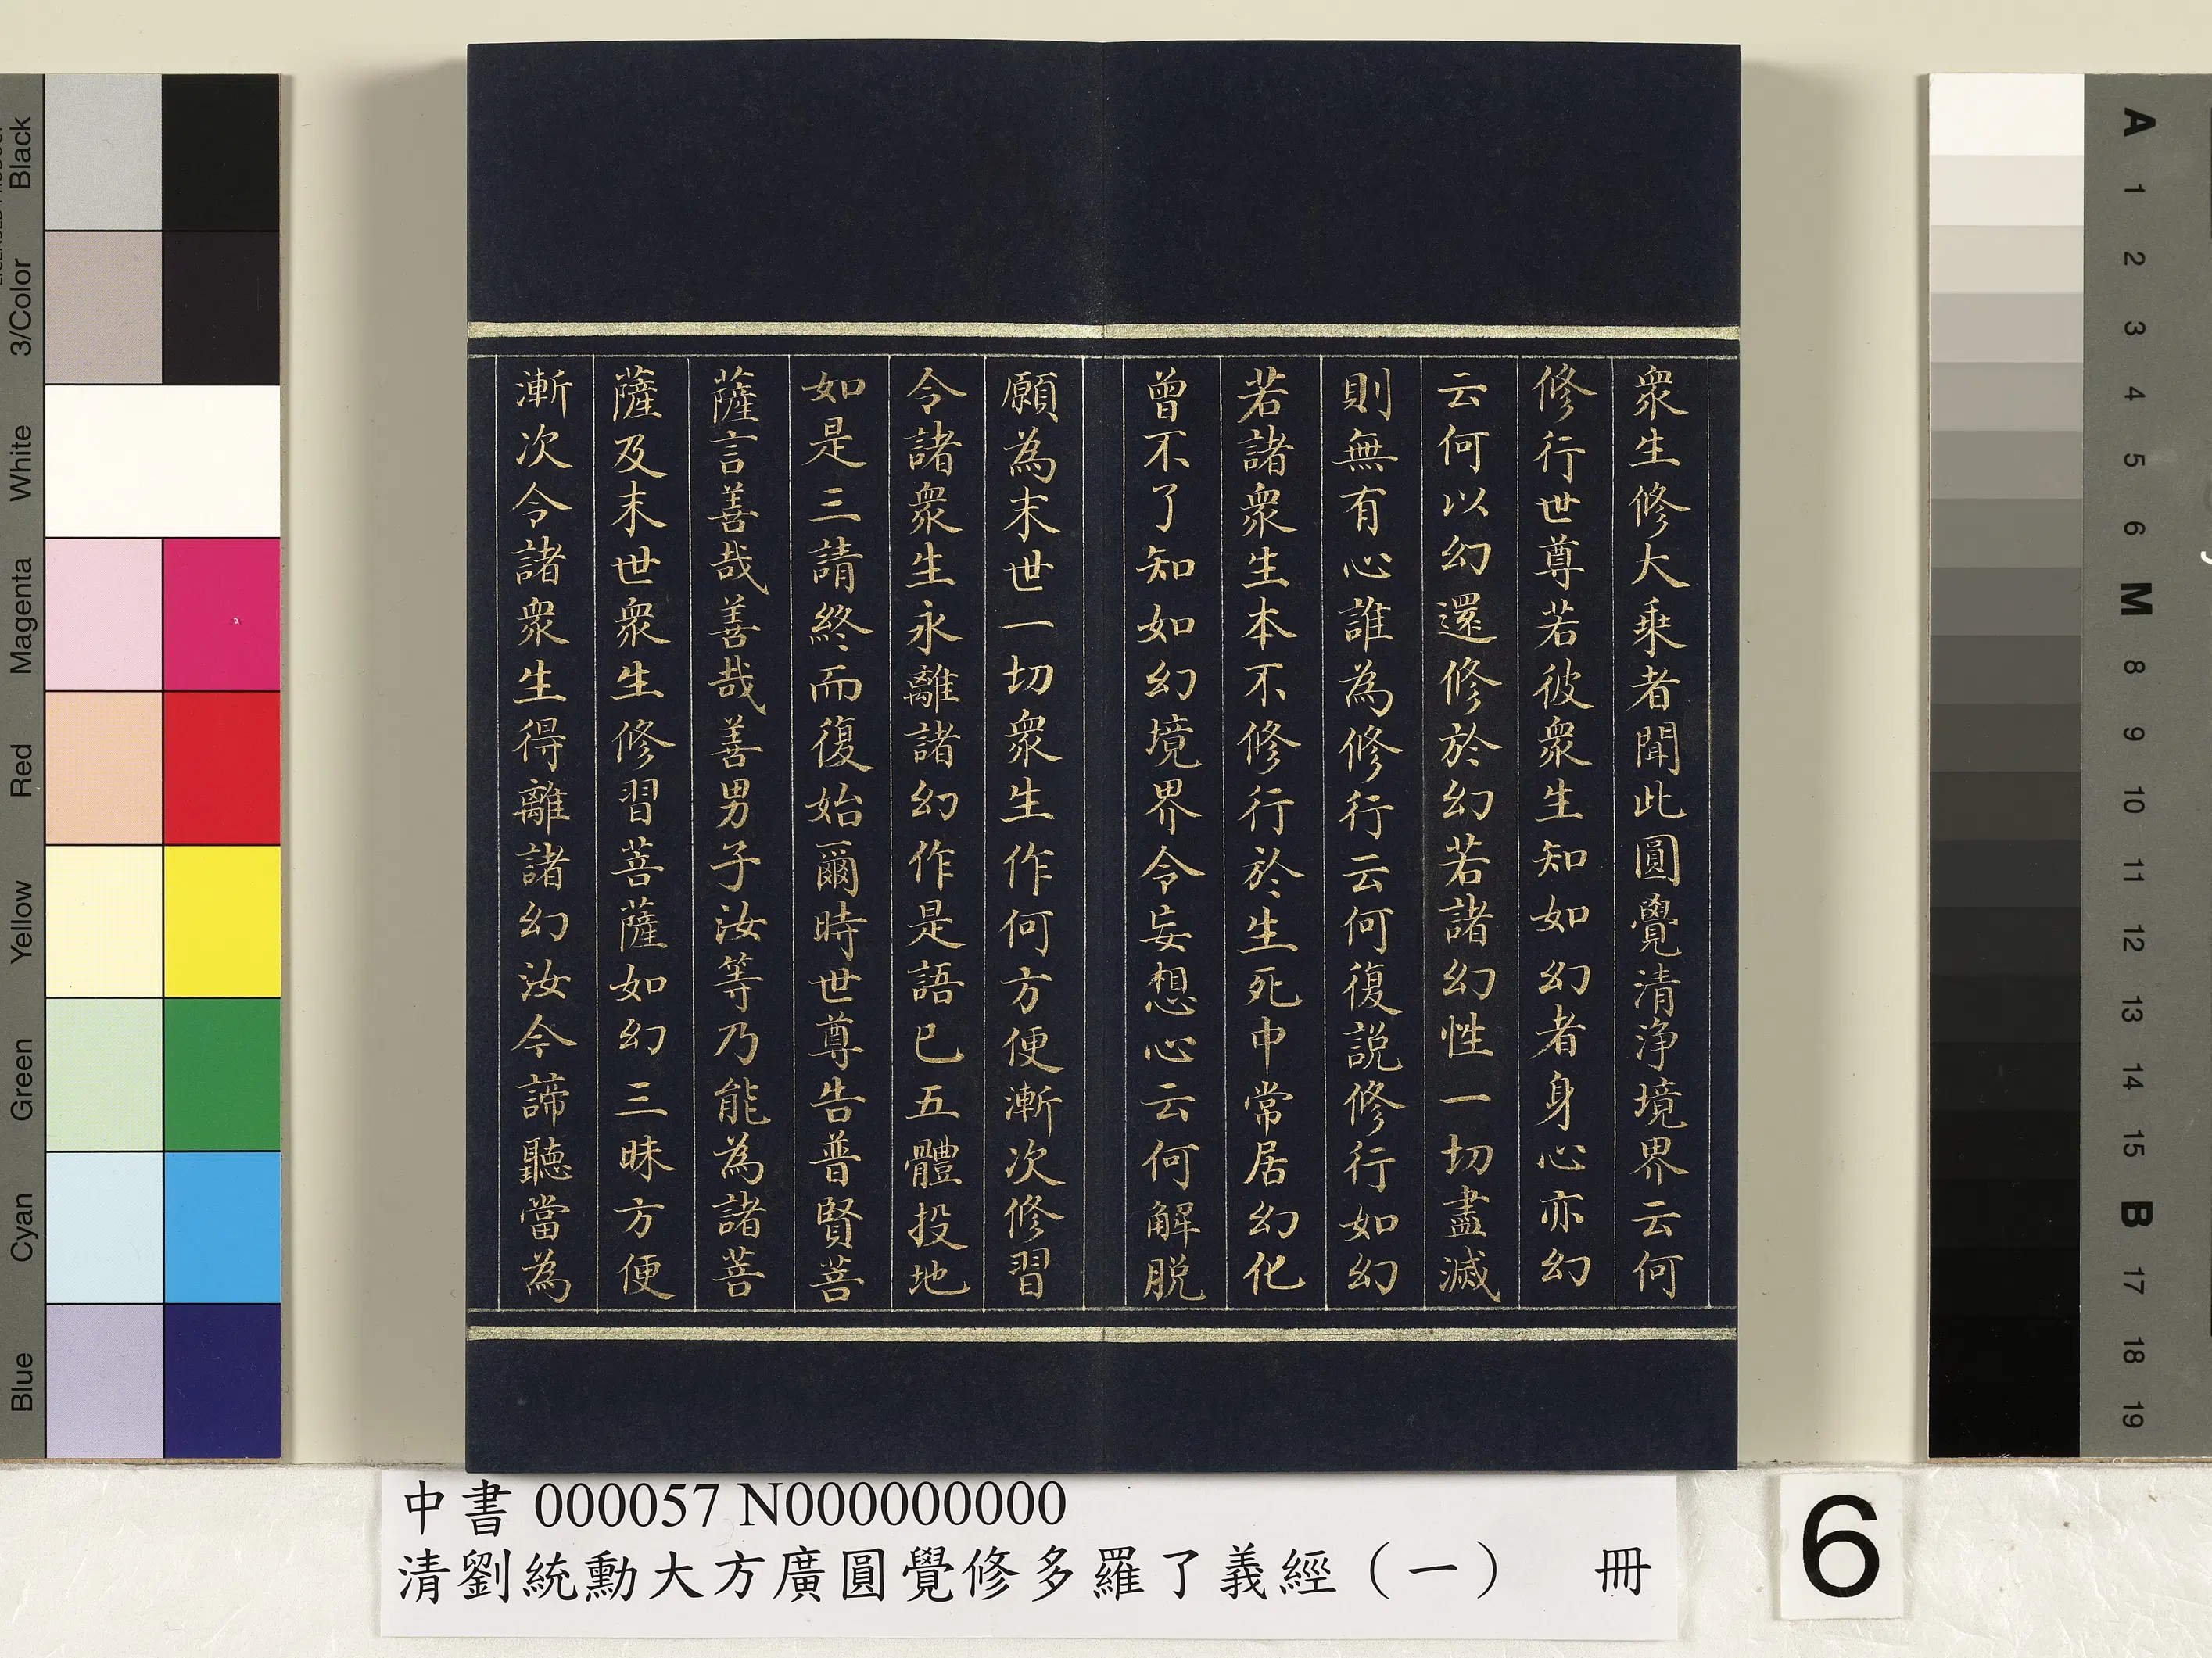 衆生修大乘者聞此圓覺清淨境界云何
修行世尊若彼衆生知如幻者身心亦幻
云何以幻還修於幻若諸幻性一切盡滅
則無有心誰為修行云何復説修行如幻
若諸衆生本不修行於生死中常居幻化
曾不了知如幻境界令妄想心云何解脱
願為末世一切衆生作何方便漸次修習
令諸衆生永離諸幻作是語已五體投地
如是三請終而復始爾時世尊告普賢菩
薩言善哉善哉善男子汝等乃能為諸菩
薩及末世衆生修習菩薩如幻三昧方便
漸次令諸衆生得離諸幻汝今諦聽當為
中書 000057 N000000000
清劉統勳大方廣圓覺修多羅了義經（一） 冊
6
Black
3/Color
White
Magenta
Red
Yellow
Green
Cyan
Blue
A
1
2
3
4
5
6
M
8
9
10
11
12
13
14
15
B
17
18
19